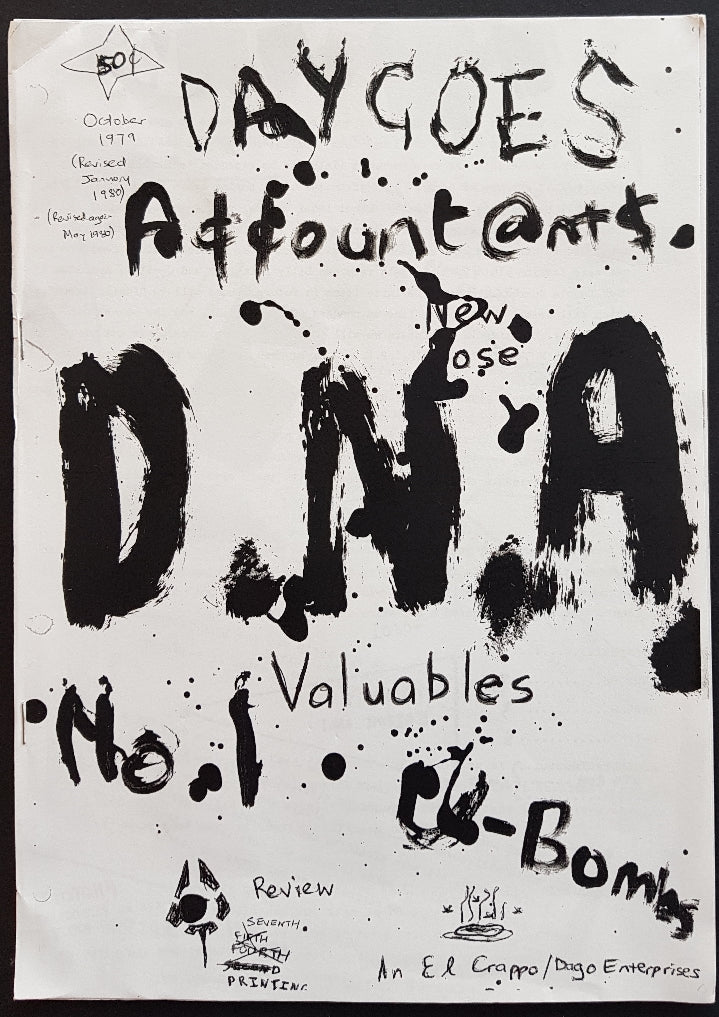 50¢
October
1979
(Revised
January
1980)
(Revised again
May 1980)
DAYGOES
A¢¢ount@nt$.
New
Rose
D.N.A
Valuables
No.1.
U-Bombs
Review
SEVENTH.
FIFTH
FOURTH
SECOND
PRINTING.
An El Crappo/Dago Enterprises